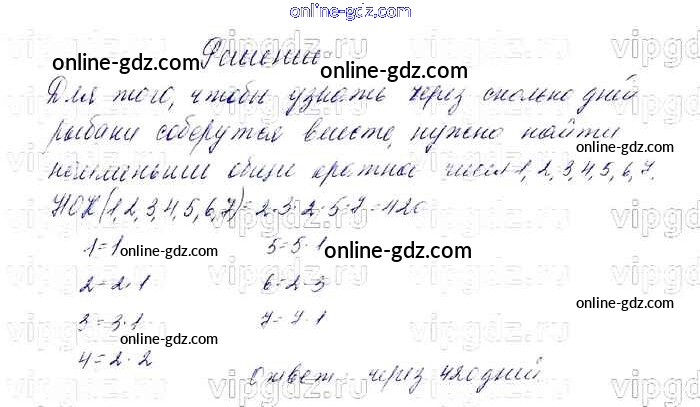 online-gdz.com
Решение
online-gdz.com
online-gdz.com
Для того, чтобы узнать через сколько дней
рыбаки соберутся вместе, нужно найти
online-gdz.com
наименьшее общее кратное чисел 1, 2, 3, 4, 5, 6, 7.
НОК(1,2,3,4,5,6,7)=2·3·2·5·7=420
1=1 online-gdz.com 5=5·1 online-gdz.com
2=2·1 6=2·3
online-gdz.com
3=3·1 7=7·1
online-gdz.com
4=2·2
Ответ: через 420 дней
vipgdz